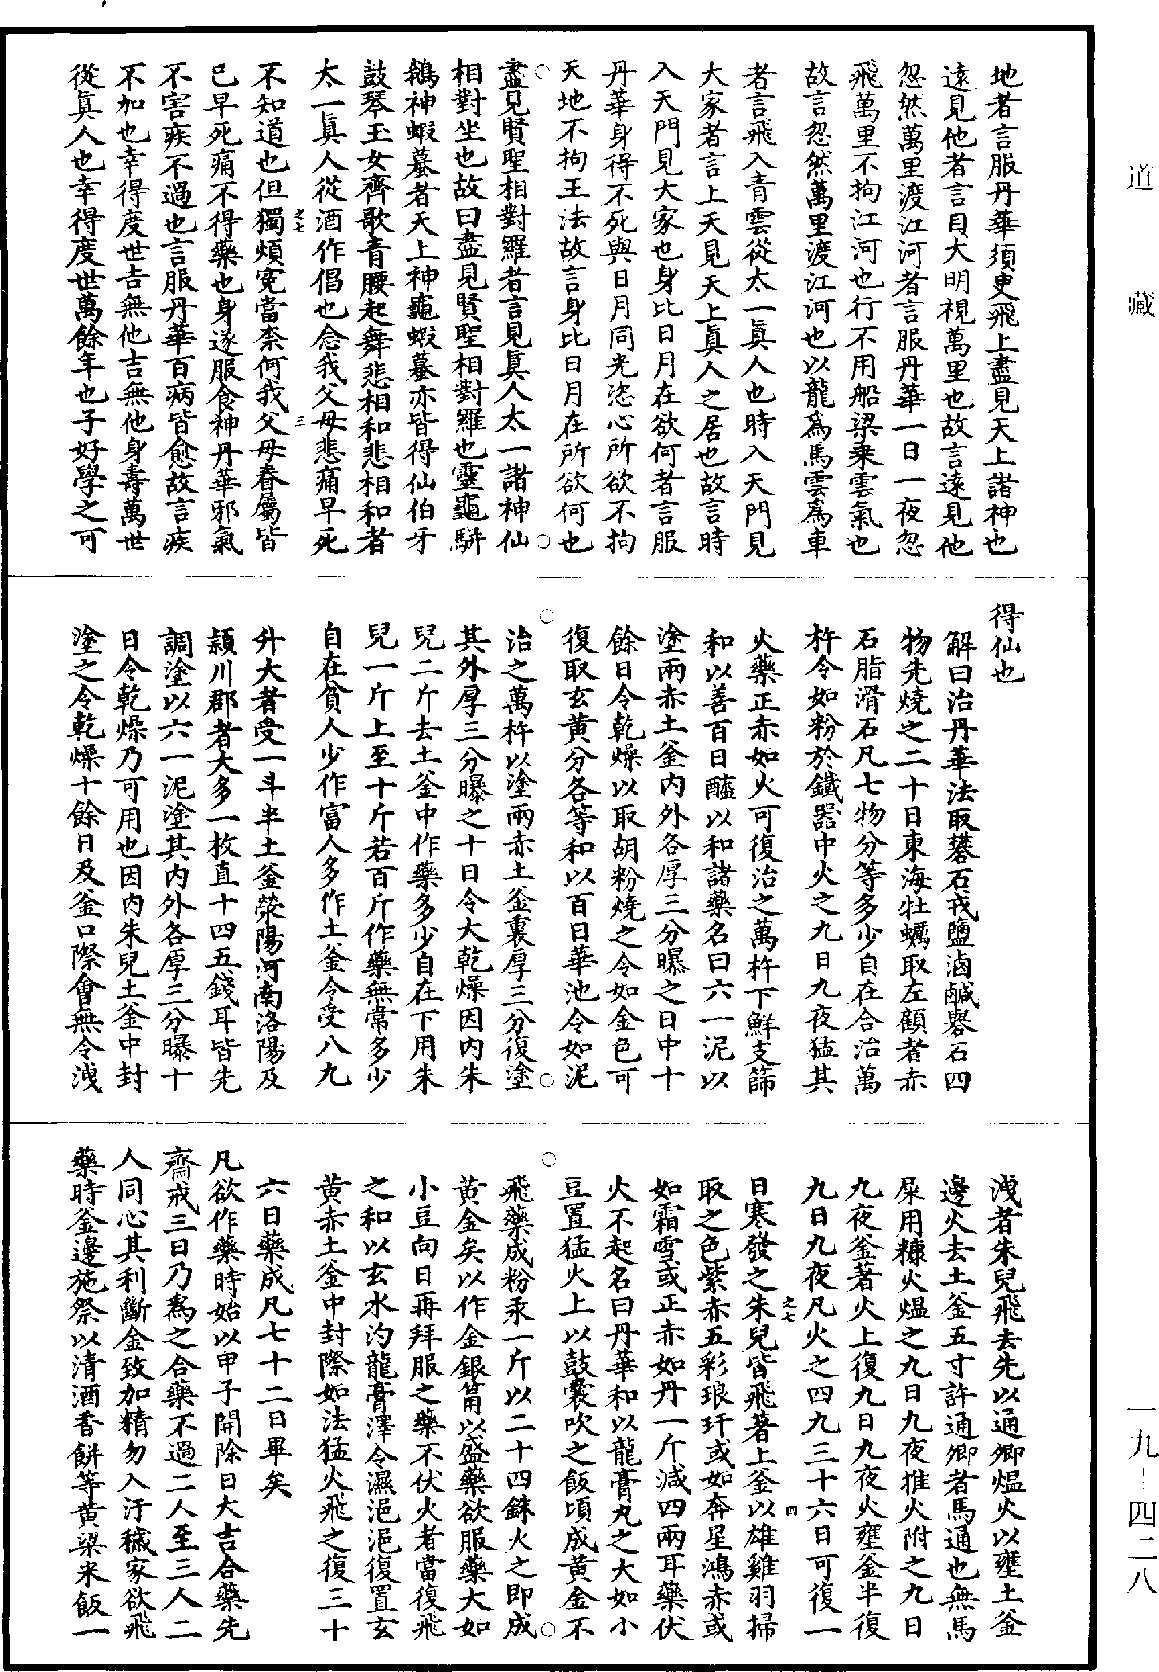 道藏
地者言服丹華須臾飛上盡見天上諸神也
遠見他者言目大明視萬里也故言遠見他
忽然萬里渡江河者言服丹華一日一夜忽
飛萬里不拘江河也行不用船梁乘雲氣也
故言忽然萬里渡江河也以龍爲馬雲爲車
者言飛入青雲從太一眞人也時入天門見
大家者言上天見天上眞人之居也故言時
入天門見大家也身比日月在欲何者言服
丹華身得不死與日月同光恣心所欲不拘
天地不拘王法故言身比日月在所欲何也
盡見賢聖相對羅者言見眞人太一諸神仙
相對坐也故曰盡見賢聖相對羅也靈龜駢
鵝神蝦蟇者天上神龜蝦蟇亦皆得仙伯牙
鼓琴玉女齊歌青腰起舞悲相和悲相和者
太一眞人從酒作倡也念我父母悲痛早死
不知道也但獨煩寃當柰何我父母眷屬皆
巳早死痛不得藥也身遂服食神丹華邪氣
不害疾不過也言服丹華百病皆愈故言疾
不加也幸得度世吉無他吉無他身壽萬世
從眞人也幸得度世萬餘年也子好學之可
得仙也
解曰治丹華法取礬石戎鹽滷鹹礜石四
物先燒之二十日東海牡蠣取左顧者赤
石脂滑石凡七物分等多少自在合治萬
杵令如粉於鐵器中火之九日九夜猛其
火藥正赤如火可復治之萬杵下鮮支篩
和以善百日醯以和諸藥名曰六一泥以
塗兩赤土釜內外各厚三分曝之日中十
餘日令乾燥以取胡粉燒之令如金色可
復取玄黃分各等和以百日華池令如泥
治之萬杵以塗兩赤土釜裏厚三分復塗
其外厚三分曝之十日令大乾燥因內朱
兒二斤去土釜中作藥多少自在下用朱
兒一斤上至十斤若百斤作藥無常多少
自在貧人少作富人多作土釜令受八九
升大者受一斗半土釜滎陽河南洛陽及
潁川郡者大多一枚直十四五錢耳皆先
調塗以六一泥塗其內外各厚三分曝十
日令乾燥乃可用也因內朱兒土釜中封
塗之令乾燥十餘日及釜口際會無令洩
洩者朱兒飛去先以通卿熅火以壅土釜
邊火去土釜五寸許通卿者馬通也無馬
屎用糠火熅之九日九夜推火附之九日
九夜釜著火上復九日九夜火壅釜半復
九日九夜凡火之四九三十六日可復一
日寒發之朱兒皆飛著上釜以雄雞羽掃
取之色紫赤五彩琅玕或如奔星鴻赤或
如霜雪或正赤如丹一斤減四兩耳藥伏
火不起名曰丹華和以龍膏丸之大如小
豆置猛火上以鼓囊吹之飯頃成黃金不
飛藥成粉汞一斤以二十四銖火之即成
黃金矣以作金銀筩以盛藥欲服藥大如
小豆向日再拜服之藥不伏火者當復飛
之和以玄水汋龍膏澤令濕浥浥復置玄
黃赤土釜中封際如法猛火飛之復三十
六日藥成凡七十二日畢矣
凡欲作藥時始以甲子開除日大吉合藥先
齋戒三日乃爲之合藥不過二人至三人二
人同心其利斷金致加精勿入汙穢家欲飛
藥時釜邊施祭以清酒香餅等黃粱米飯一
一九－四二八